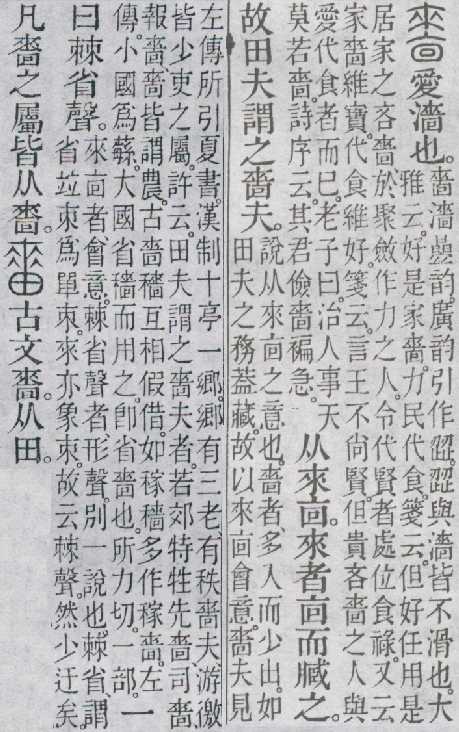 嗇愛濇也。
嗇濇曡韵。廣韵引作歰。歰與濇皆不滑也。大
雅云。好是家嗇。力民代食。箋云。但好任用是
居家之吝嗇於聚斂作力之人。令代賢者處位食祿。又云
家嗇維寶。代食維好。箋云。言王不尙賢。但貴吝嗇之人與
愛代食者而巳。老子曰。治人事天
莫若嗇。詩序云。其君儉嗇褊急。
从來㐭。來者㐭而臧之。
故田夫謂之嗇夫。
說从來㐭之意也。嗇者、多入而少出。如
田夫之務葢藏。故以來㐭會意。嗇夫見
左傳所引夏書。漢制十亭一鄉。鄉有三老、有秩嗇夫、游徼
皆少吏之屬。許云田夫謂之嗇夫者。若郊特牲先嗇、司嗇
報嗇嗇皆謂農。古嗇穡互相假借。如稼穡多作稼嗇。左
傳小國爲蘩。大國省穡而用之。卽省嗇也。所力切。一部。
一
曰棘省聲。
來㐭者會意。棘省聲者、形聲。別一說也。棘省、謂
省竝朿爲單朿。來亦象朿。故云棘聲。然少迂矣。
凡嗇之屬皆从嗇。古文嗇。从田。